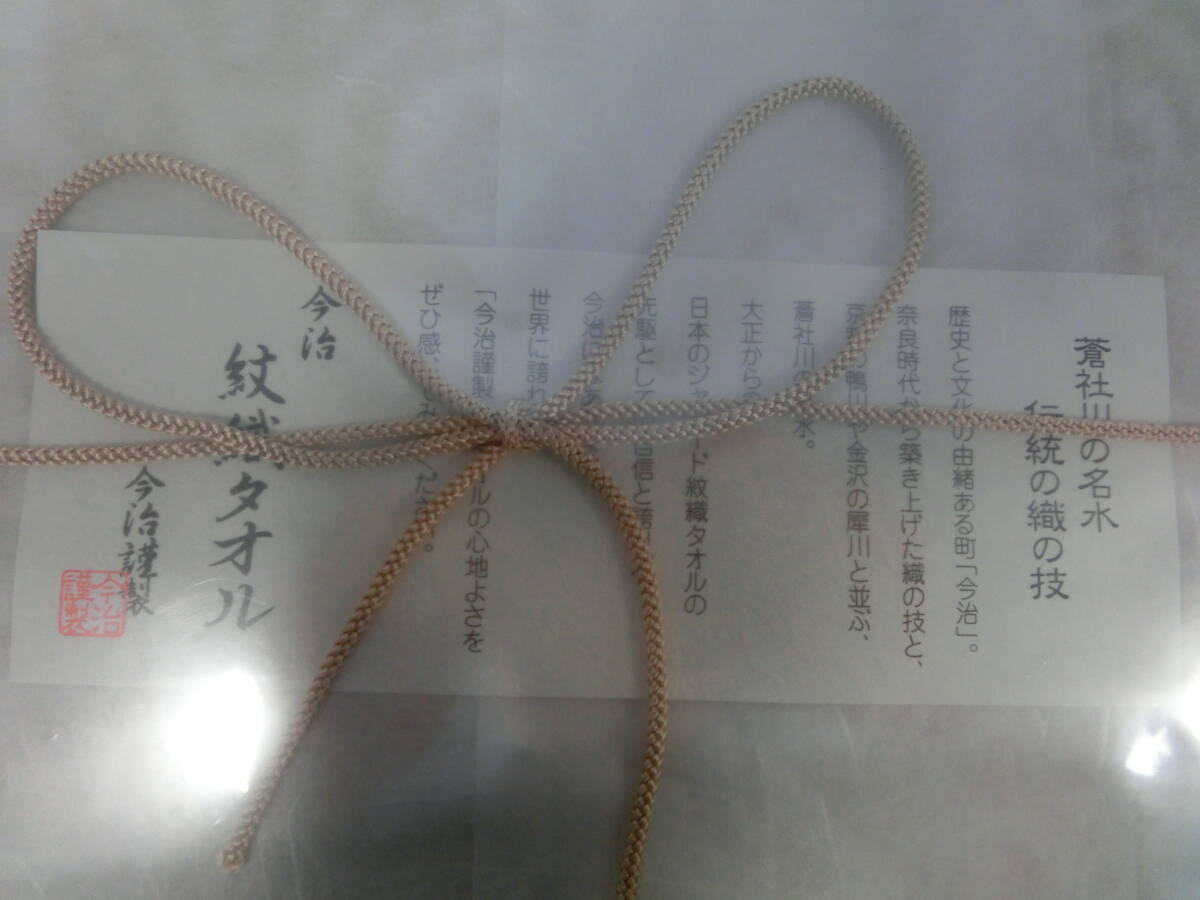 蒼社川の名水
伝統の織の技
歴史と文化の由緒ある町「今治」。
奈良時代から築き上げた織の技と、
京都の鴨川や金沢の犀川と並ぶ、
蒼社川の水。
大正から
日本のジャード紋織タオルの
先駆として自信と誇り
今治に
世界に誇れ
「今治謹製 ルの心地よさを
ぜひ感 み くだ 。
今治
紋織タオル
今治謹製
今治
謹製